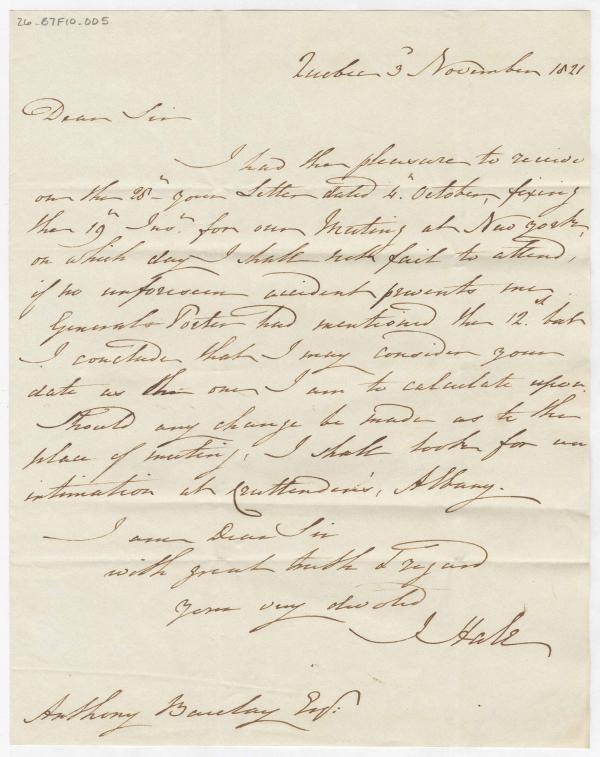 26-87F10-005
Quebec 3d November 1821
Dear Sir
I had the pleasure to receive
on the 28th your Letter dated 4th October, fixing
the 19th Inst. for our Meeting at New York,
on which day I shall not fail to attend,
if no unforeseen accident prevents me.
General Porter had mentioned the 12th but
I conclude that I may consider your
date as the one I am to calculate upon.
Should any change be made as to the
place of meeting, I shall look for an
intimation at Cruttenden's, Albany.
I am Dear Sir
with great truth & regard
your very devoted
J Hale
Anthony Barclay Esqr.